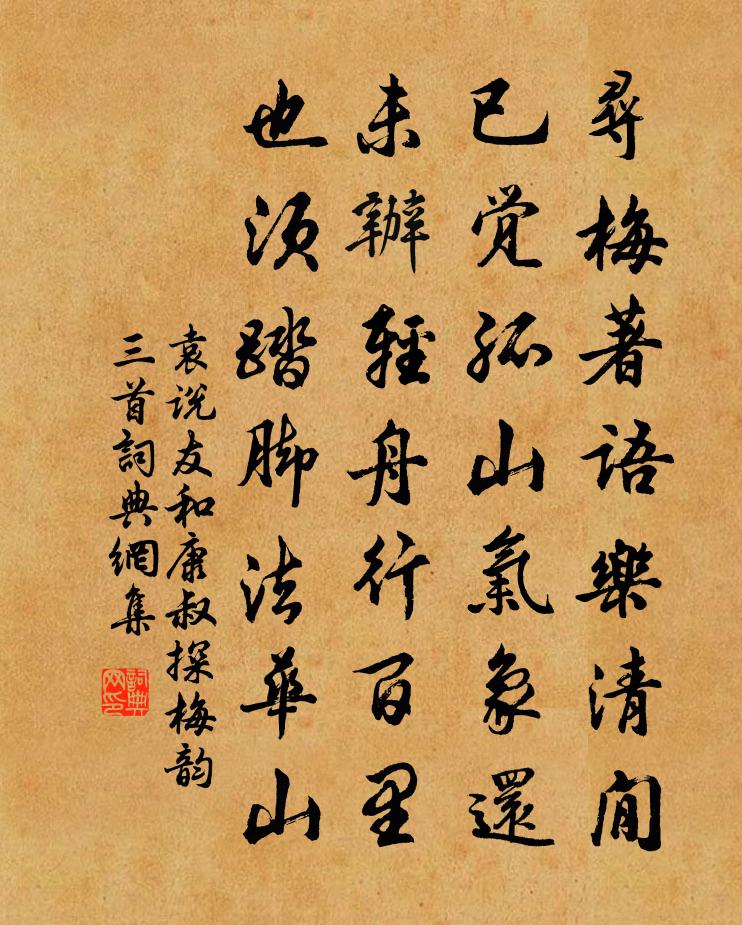 尋梅著語樂清閒
已覚孤山氣象還
未辦輕舟行百里
也須踏脚法華山
袁说友和康叔探梅韵
三首詞典網集
詞典
网印